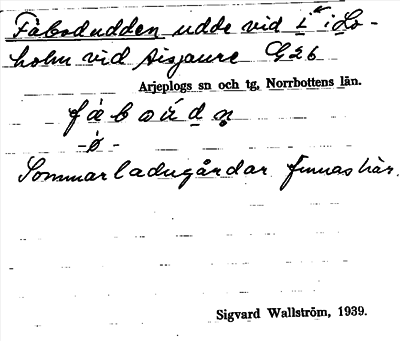 Fäbodudden udde vid i Lo-
holm vid Aisjaure G 26
Arjeplogs sn och tg, Norrbottens län.
Sommarladugårdar finnas här.
Sigvard Wallström, 1939.